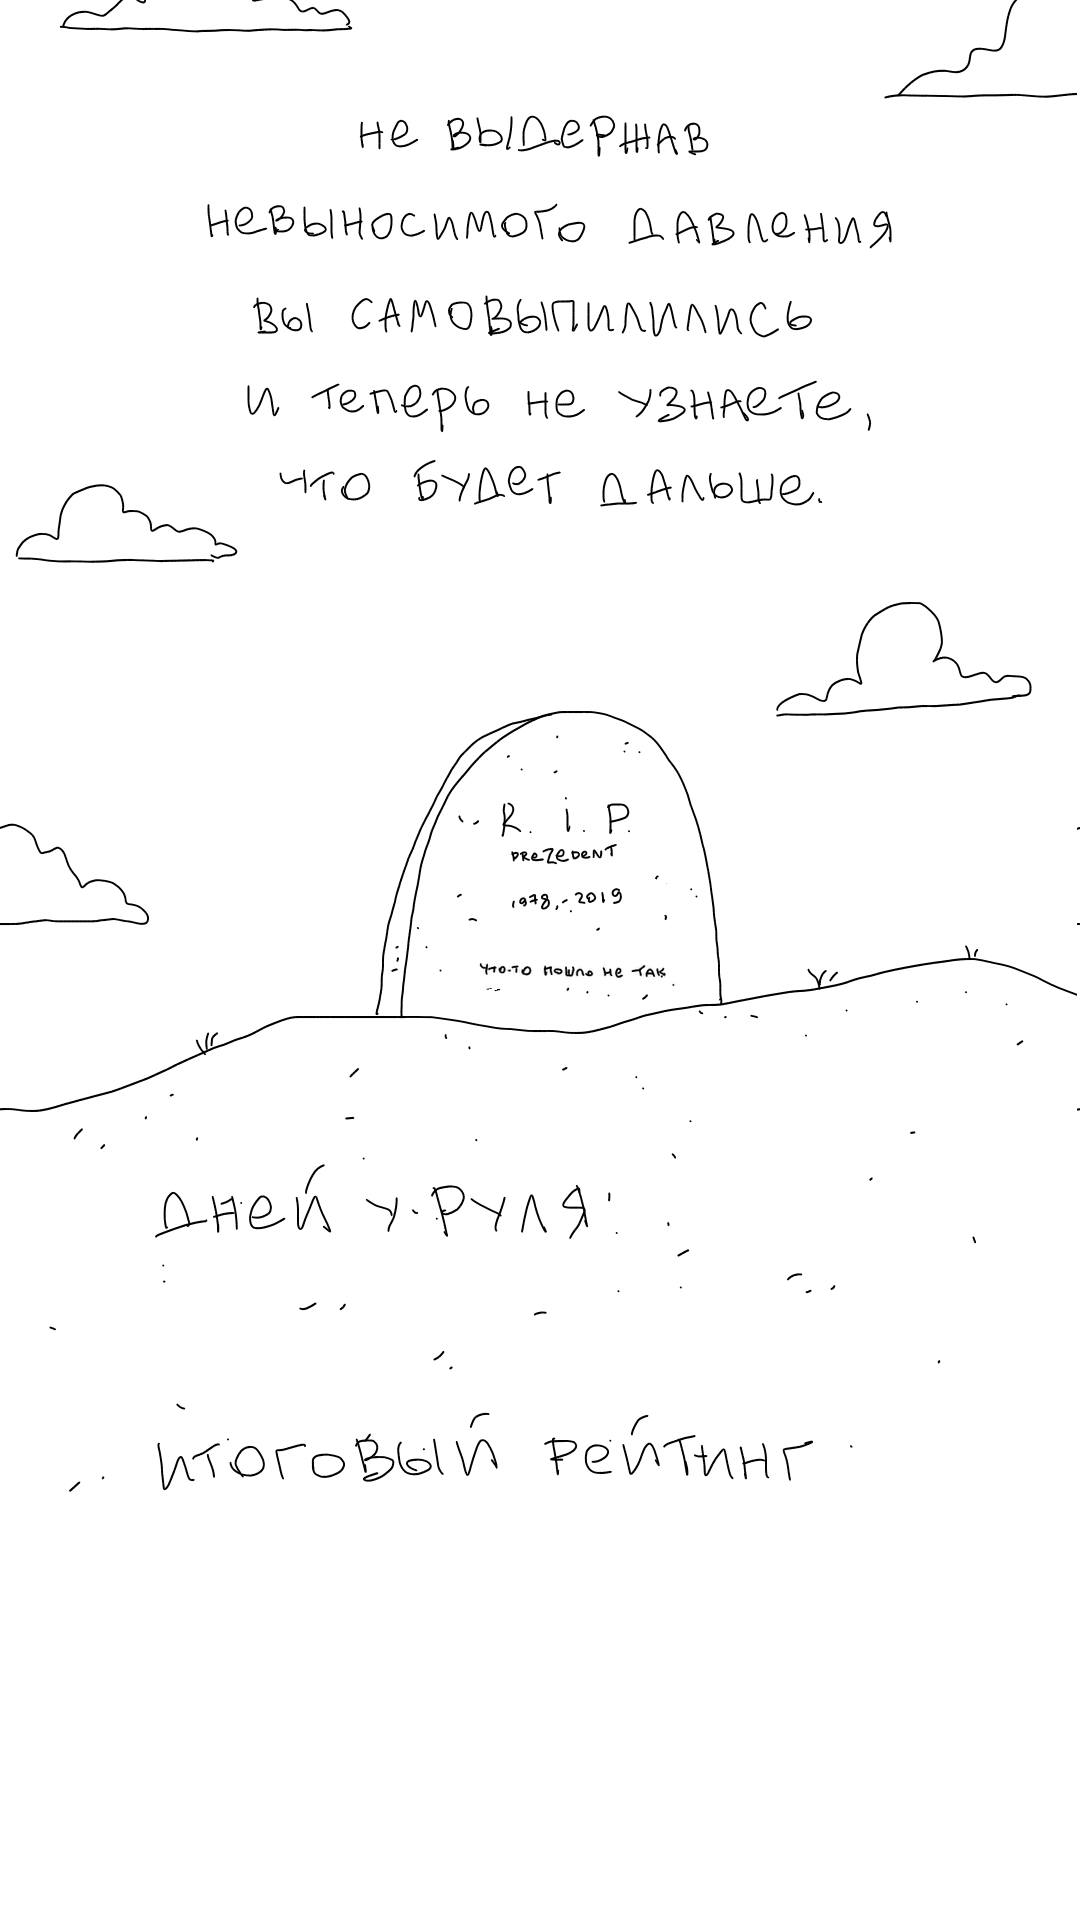 не выдержав
невыносимого давления
вы самовыпилились
и теперь не узнаете,
что будет дальше.
R. i. P.
PReZeDeNT
1978,-2019
что-то пошло не так
дней у руля:
итоговый рейтинг